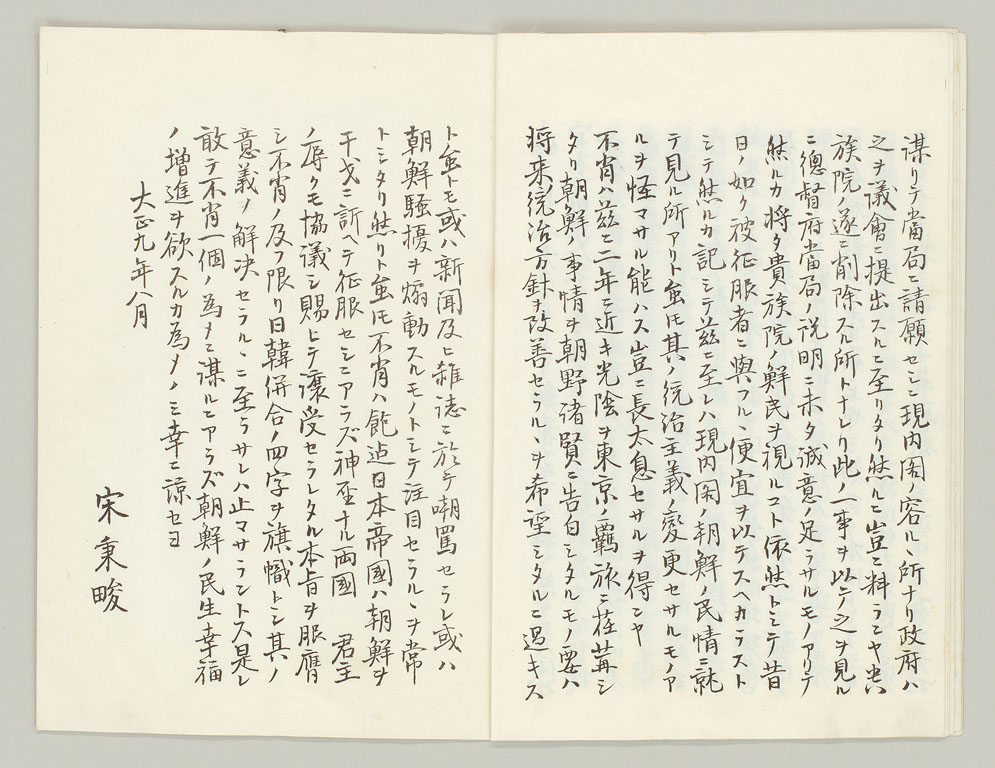 謀リテ當局ニ請願セシニ現内閣ノ容ルヽ所ナリ政府ハ
之ヲ議會ニ提出スルニ至リタリ然ルニ豈ニ料ランヤ貴
族院ノ遂ニ削除スル所トナレリ此ノ一事ヲ以テ之ヲ見ル
ニ總督府當局ノ説明ニ未タ誠意ノ足ラサルモノアリテ
然ルカ将タ貴族院ノ鮮民ヲ視ルコト依然トシテ昔
日ノ如ク被征服者ニ與フルヽ便宜ヲ以テスヘカラスト
シテ然ルカ記シテ茲ニ至レハ現内閣ノ朝鮮ノ民情ニ就
テ見ル所アリト雖𪜈其ノ統治主義ノ變更セサルモノア
ルヲ怪マサル能ハス豈ニ長太息セサルヲ得ンヤ
不肖ハ茲ニ二年ニ近キ光陰ヲ東京ノ羈旅ニ荏苒シ
タリ朝鮮ノ事情ヲ朝野諸賢ニ告白シタルモノ要ハ
将来統治方針ヲ改善セラルヽヲ希望シタルニ過キス
ト雖トモ或ハ新聞及ヒ雜誌ニ於テ嘲罵セラレ或ハ
朝鮮騷擾ヲ煽動スルモノトシテ注目セラルヽヲ常
トシタリ然リト雖𪜈不肖ハ飽迠日本帝國ハ朝鮮ヲ
干戈ニ訴ヘテ征服セシニアラズ神聖ナル両國 君主
ノ辱クモ協議シ賜ヒテ讓受セラレタル本旨ヲ服膺
シ不肖ノ及フ限リ日韓併合ノ四字ヲ旗幟トシ其ノ
意義ノ解決セラルヽニ至ラサレハ止マサラントス是レ
敢テ不肖一個ノ為メニ謀ルニアラズ朝鮮ノ民生幸福
ノ增進ヲ欲スルカ為メノミ幸ニ諒セヨ
大正九年八月
宋秉畯